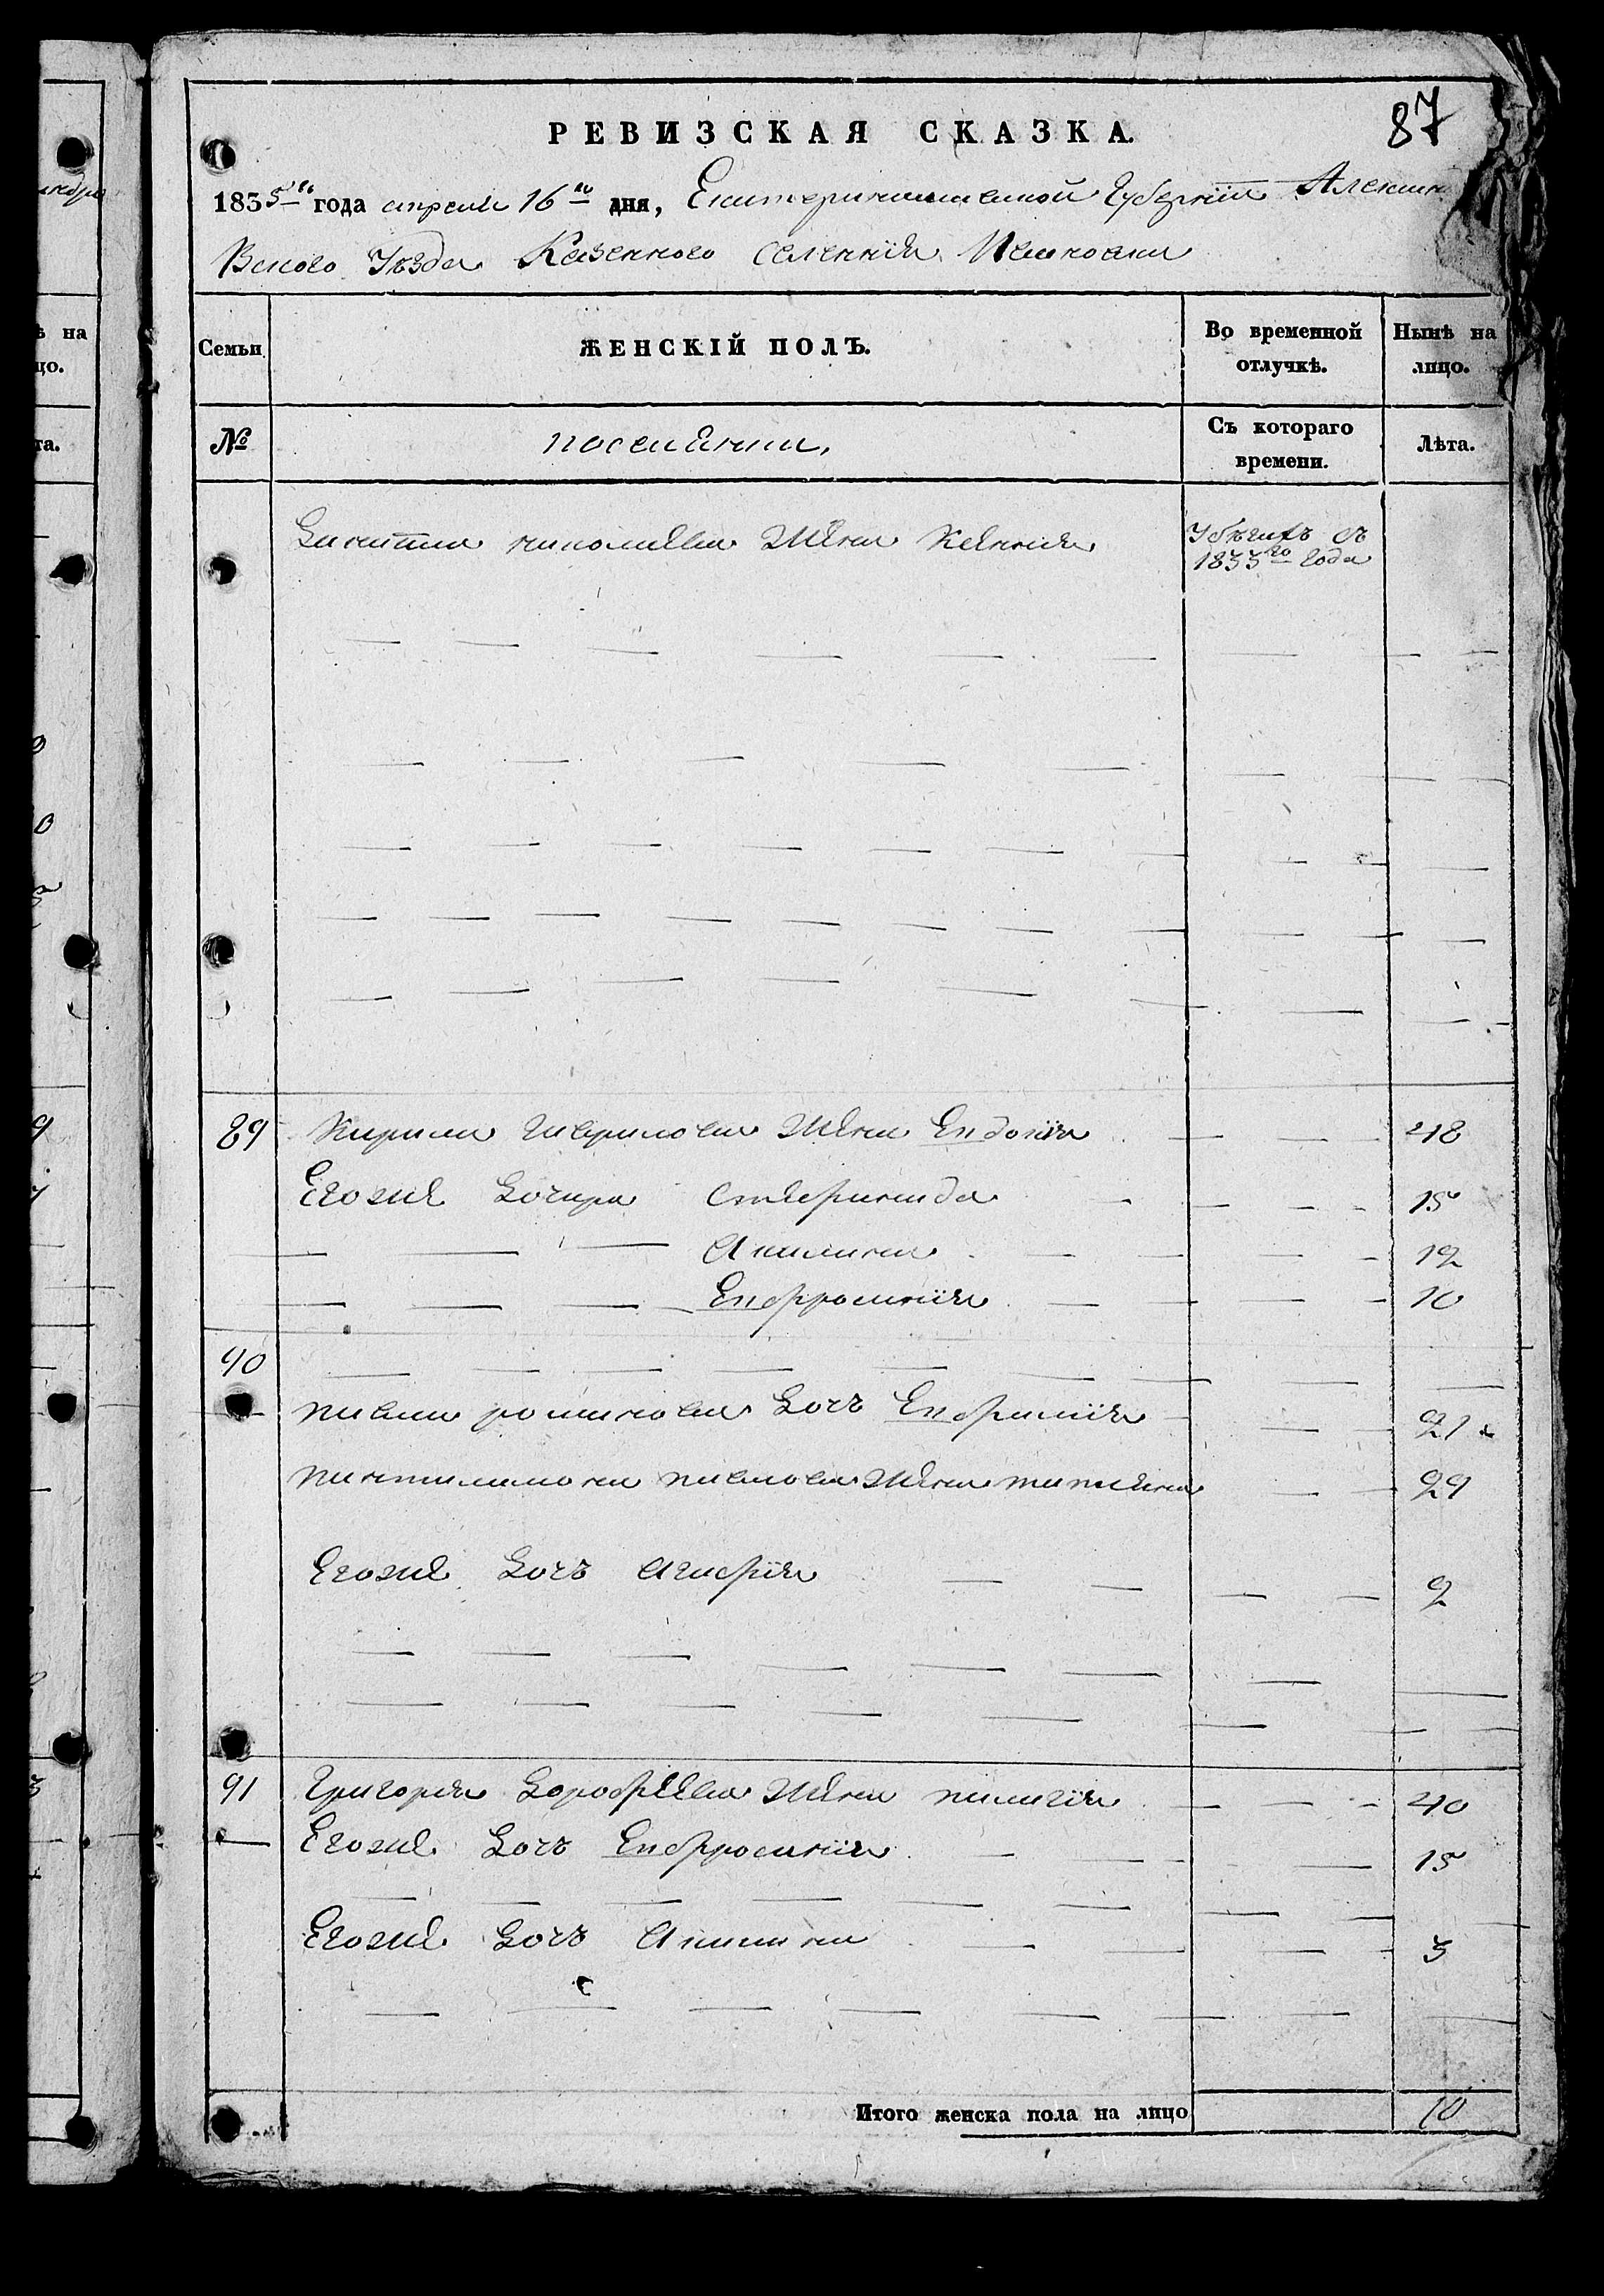 87
РЕВИЗСКАЯ СКАЗКА.
1835го года апреля 16го дня, Екатеринославской Губернiи Алексан
Вского Уѣзда Казенного селенiя
Семьи
ЖЕНСКIЙ ПОЛЪ.
Во временной отлучкѣ.
Нынѣ на лицо.
№
поселянки,
Съ котораго времени.
Лѣта.
Никиты николаева Жена Ксенiя
1833го Года
89 Кирила Гаврилова Жена Евдокiя 48
Егожъ Дочери 15
Акилина 12
Евфросинiя 10
90
павла романова Дочь Евфимiя 21
пантилимона павлова Жена татияна 29
Егожъ Дочь Агафiя 2
91 Григория Дорофѣева Жена пилагiя 40
Егожъ Дочь Евфросинiя 15
Егожъ Дочь Акилина 3
Итого женска пола на лицо 10
ѣ на
цо.
та.